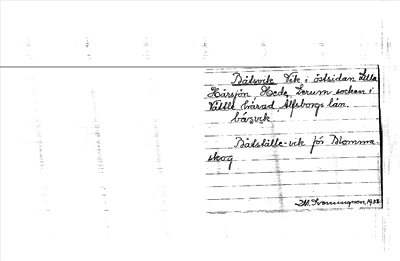 Båtsvik Vik i östsidan Lilla
Härsjön, Heda, Lerum socken i
Vättle härad, Älfsborgs län.
båzvik
Båtställe-vik för Blomma-
skog
M. Svenningson, 1928